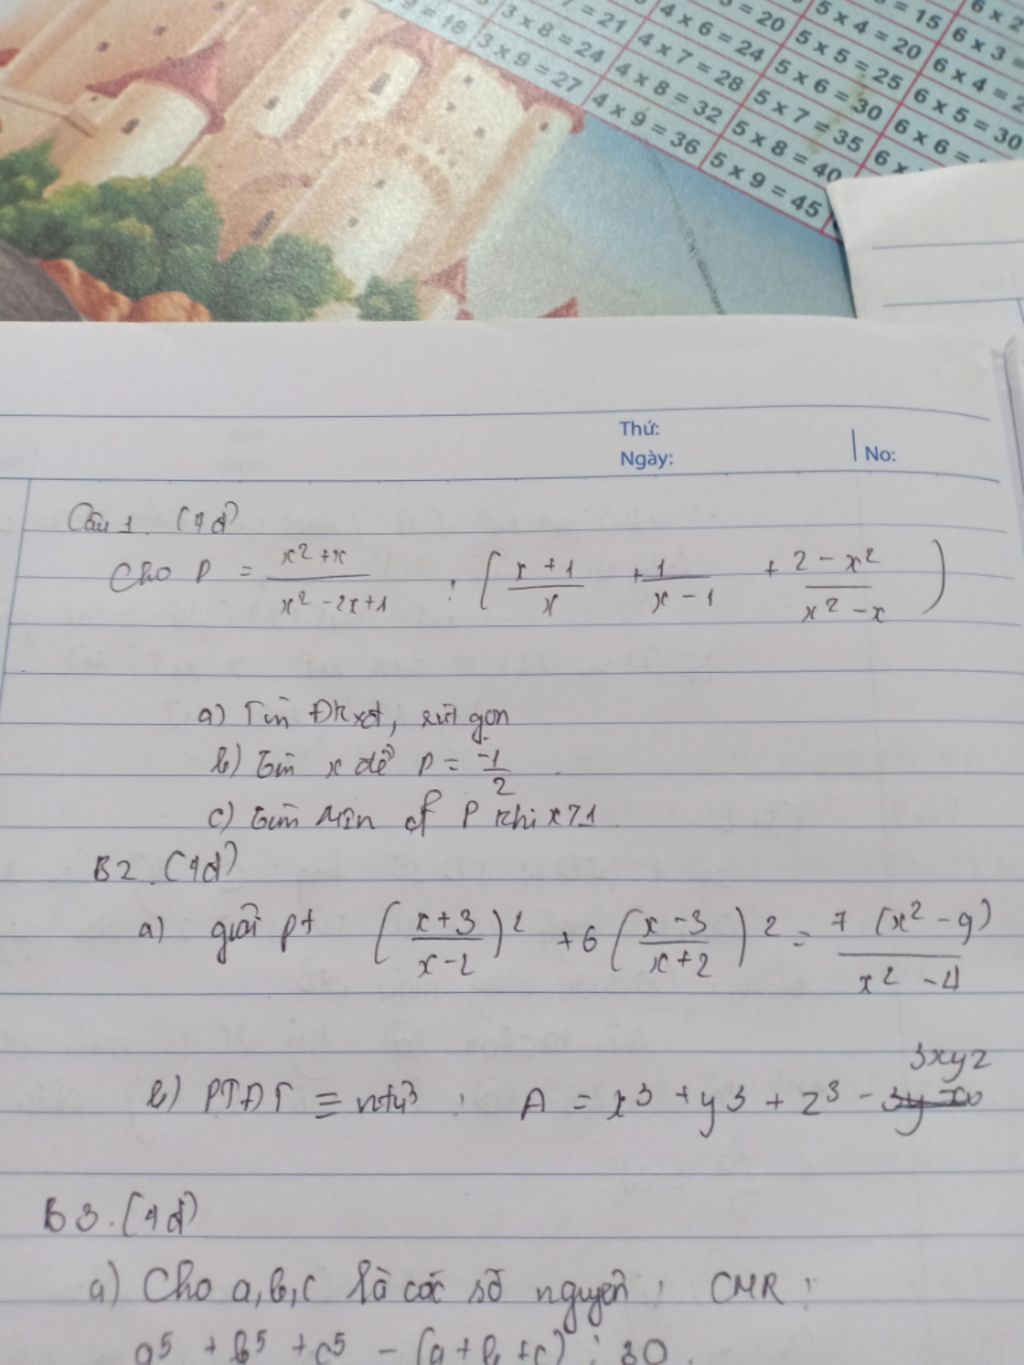 9 = 18
3 x 8 = 24
3 x 9 = 27
7 = 21
4 x 6 = 24
4 x 7 = 28
4 x 8 = 32
4 x 9 = 36
5 = 20
5 x 4 = 20
5 x 5 = 25
5 x 6 = 30
5 x 7 = 35
5 x 8 = 40
5 x 9 = 45
= 15
6 x 2
6 x 3 =
6 x 4 = 2
6 x 5 = 30
6 x 6 =
6 x
Thứ:
Ngày:
No:
Câu 1. (4đ)
Cho P = (x² + x)/(x² - 2x + 1) : ((x + 1)/x + 1/(x - 1) + (2 - x²)/(x² - x))
a) Tìm ĐKxđ, rút gọn
b) Tìm x để P = -1/2
c) Tìm Min of P khi x>1
B2. (4đ)
a) giải pt ((x+3)/(x-2))² + 6((x-3)/(x+2))² = 7(x² - 9)/(x² - 4)
3xyz
b) PTĐT ≡ ntử : A = x³ + y³ + z³ -
B3. (4đ)
a) Cho a,b,c là các số nguyên : CMR :
a⁵ + b⁵ + c⁵ - (a + b + c) ⋮ 30